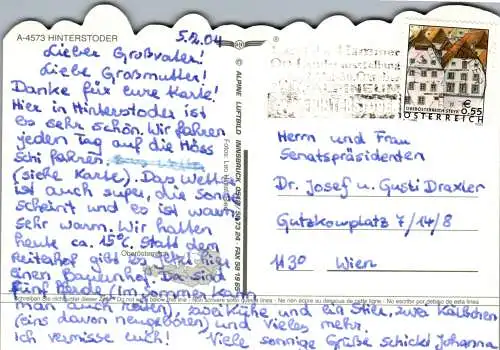 A-4573 HINTERSTODER
5.2.04
Lieber Großvater!
Liebe Großmutter!
Danke für eure Karte!
Hier in Hinterstoder ist
es sehr schön. Wir fahren
jeden Tag auf die Höss
schi fahren.
(siehe Karte). Das Wetter
ist auch super, die Sonne
scheint und es ist warm
sehr warm. Wir hatten
heute ca. 15°C. Statt dem
Reiterhof gibt es jetzt hier
einen Bauernhof. Da sind
fünf Pferde (im Sommer kann
man auch reiten), zwei Kühe und ein Stier, zwei Kälbchen
(eins davon neugeboren) und vieles mehr.
Ich vermisse euch! Viele sonnige Grüße schickt Johanna
Oberösterreich
© ALPINE LUFTBILD INNSBRUCK
Fotos:
€ 0,55
OBERÖSTERREICH STEYR
ÖSTERREICH
Herrn und Frau
Senatspräsidenten
Dr. Josef u. Gusti Draxler
Gutzkowplatz 7/14/8
1130 Wien
Schreiben Sie nicht unter dieser Do not write below this line - Non scrivere sotto questa linea - Ne rien écrire au dessous de cette ligne - No escribir por debajo de esta línea